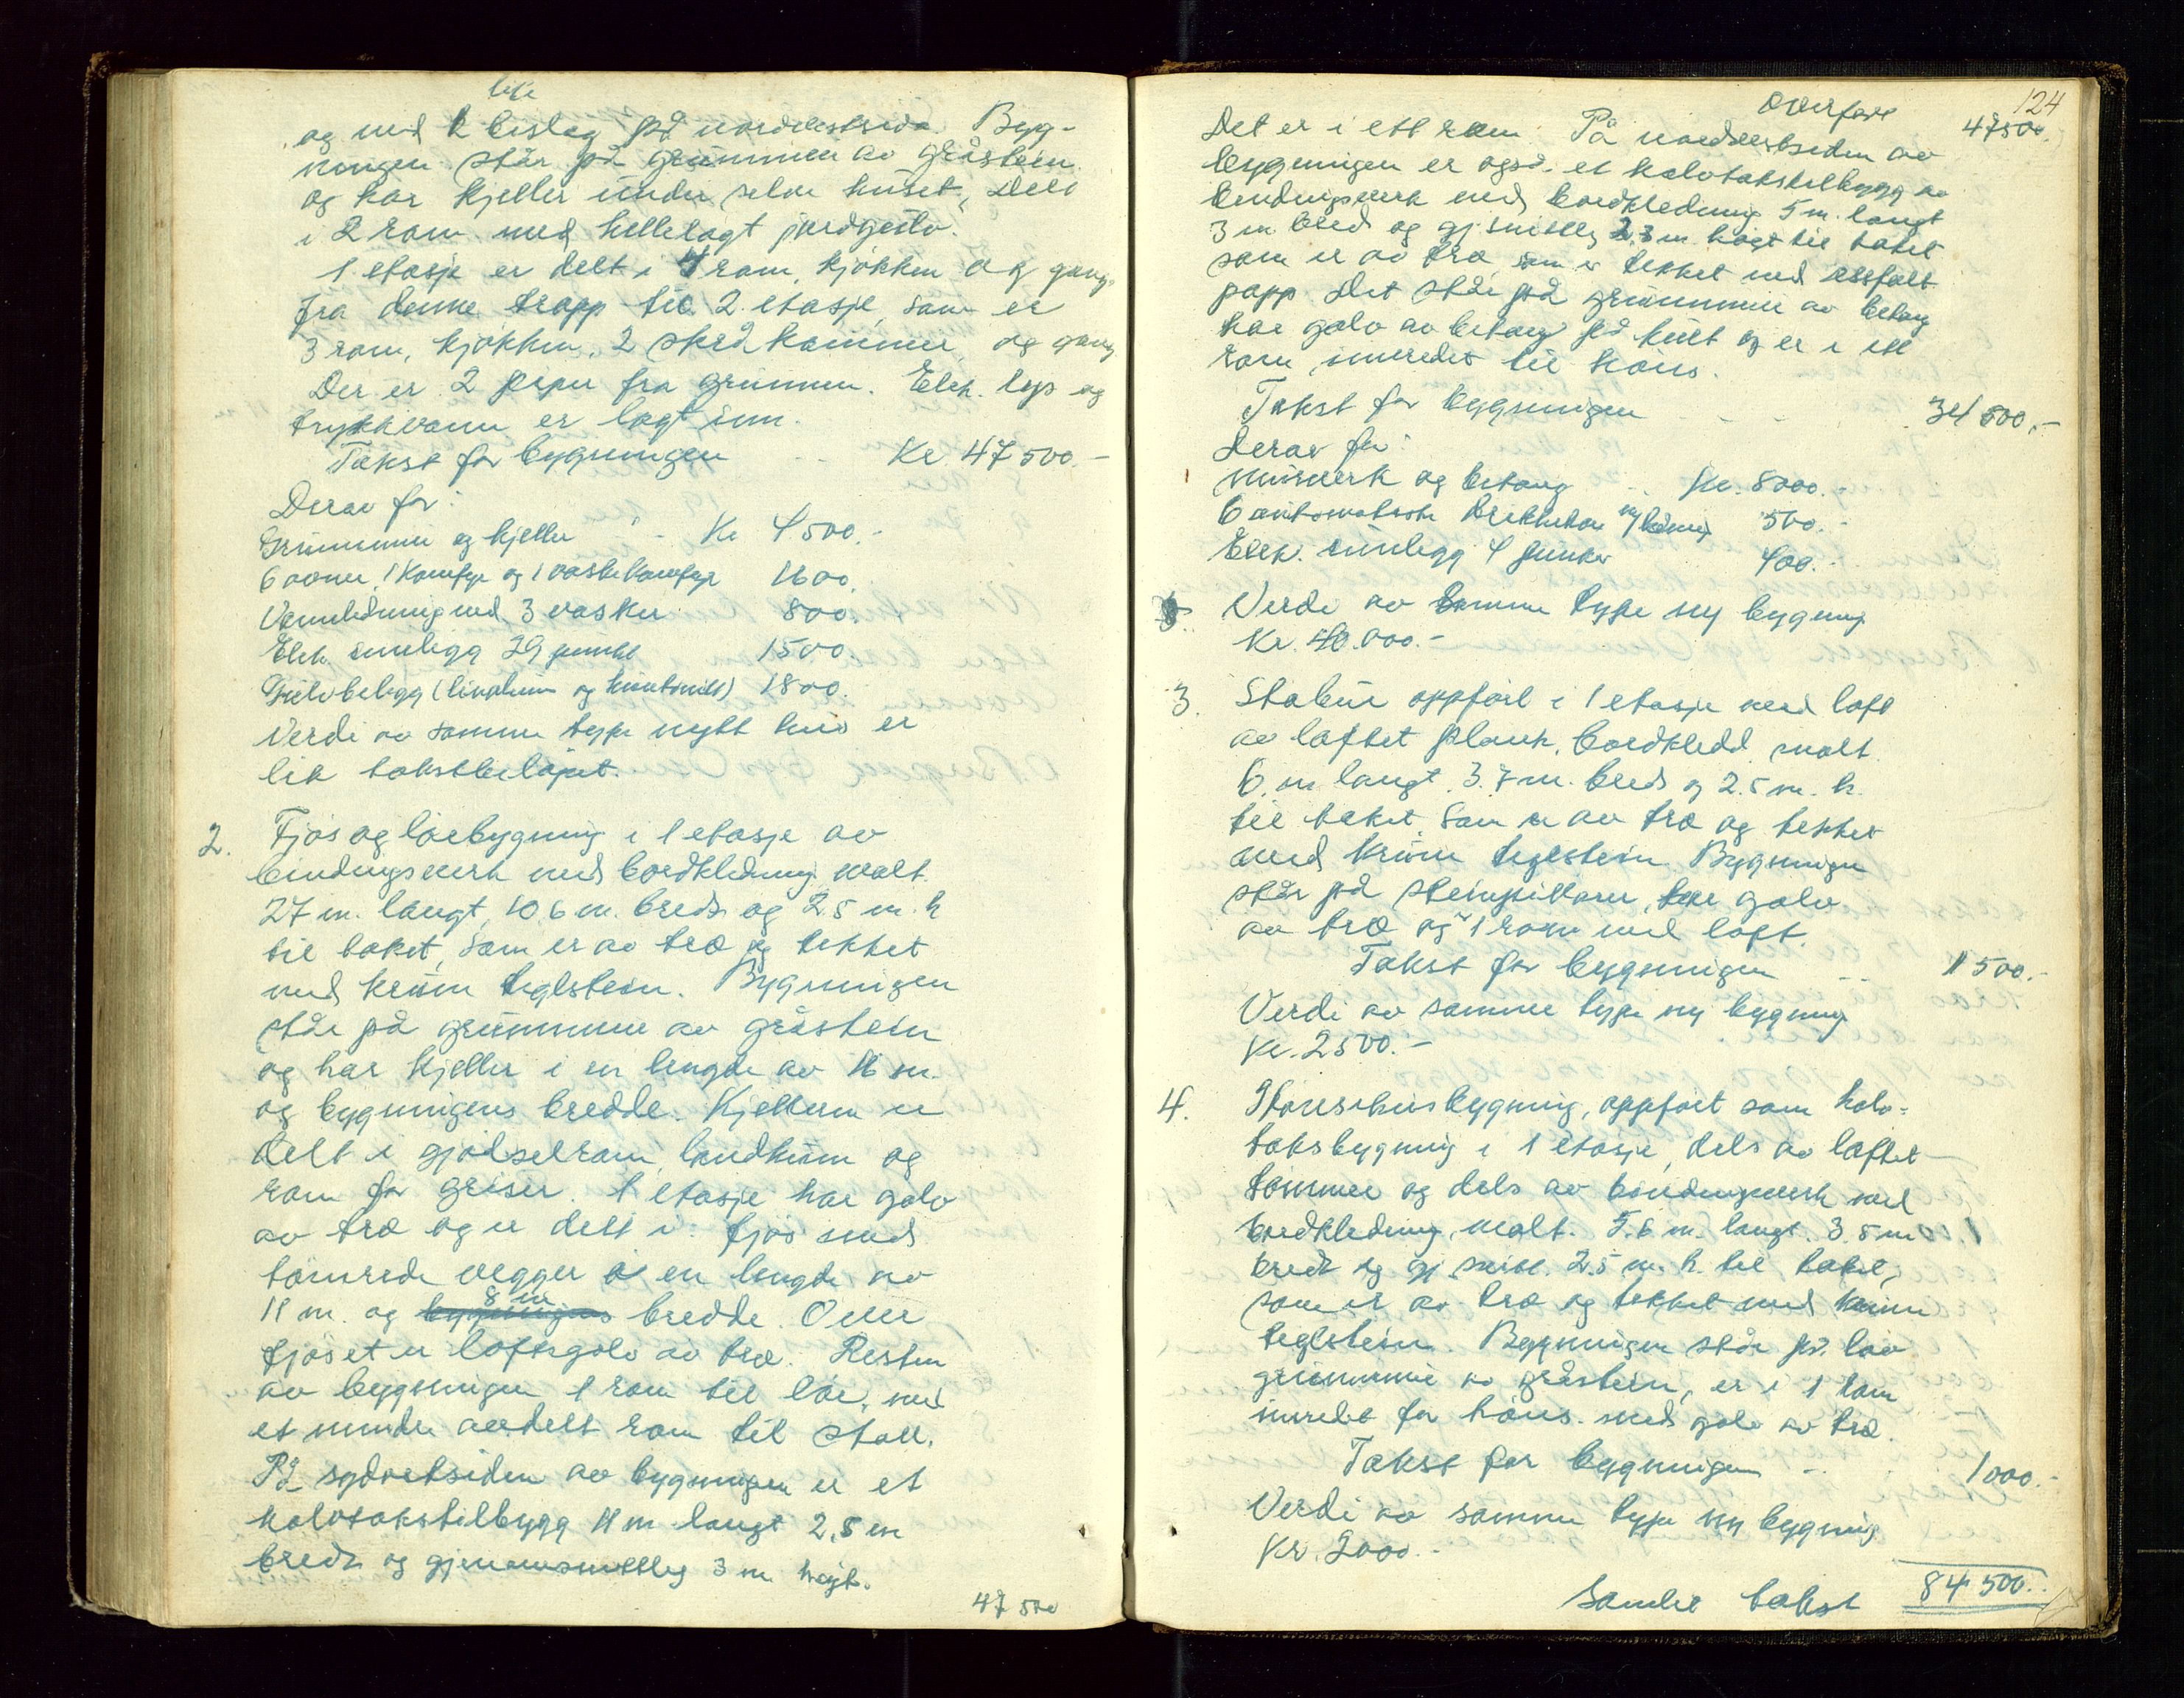 lite
og med 1 bislag på nordostsida. Byg-
ningen står på grunnmur av gråstein
og har kjeller under selve huset, delt
i 2 rom med hellelagt jordgolv.
1 etasje er delt i 4 rom, kjøkken og gang,
fra denne trapp til 2. etasje, som er
3 rom, kjøkken, 2 skråkammer og gang
Der er 2 piper fra grunnen. Elek. lys og
trykkvann er lagt inn.
Takst for bygningen Kr 47 500.-
Derav for:
Grunnmur og kjeller Kr 4 500.-
6 ovner, 1 komfyr og 1 vaskekomfyr 1600.
Vannledning med 3 vasker 800.
Elek. innlegg 29 punkt 1500.
Gulvbelegg (linoleum og ) 1800.
Verdi av samme type nytt hus er
lik takstbeløpet.
2. Fjøs og løebygning i 1 etasje av
bindingsverk med bordkledning malt.
27 m. langt, 10,6 m. bredt og 2.5 m. h
til taket, som er av tre og tekket
med krum teglstein. Bygningen
står på grunnmur av gråstein
og har kjeller i en lengde av 16 m.
og bygningens bredde. Kjelleren er
delt i gjødselrom, landkum og
rom for griser. 1 etasje har golv
av tre og er delt i: fjøs med
tømrede vegger i en lengde av
8 m
11 m. og bygningens bredde. Over
fjøset er loftsgolv av tre. Resten
av bygningen 1 rom til løe, med
et mindre avdelt rom til stall.
På sydvestsiden av bygningen er et
halvtakstilbygg 11 m langt 2,5 m
bredt og gjennomsnittlig 3 m høgt.
47 500
124
Overført 47500.
Det er i ett rom. På nordvestsiden av
bygningen er også et halvtakstilbygg av
bindingsverk med bordkledning 5 m. langt
3 m bred og gj.snittlig 2,3 m høgt til taket
som er av tre, som er tekket med assfalt
papp. Det står på grunnmur av betong
har golv av betong på kult og er i ett
rom innredet til høns.
Takst for bygningen 34 500.-
Derav for:
Murverk og betong Kr. 8000.-
6 automatiske drikkekar m/ledning 500.-
Elek. innlegg 4 punkt 400.-
Verdi av samme type ny bygning
Kr. 40.000.-
3. Stabur oppført i 1 etasje med loft
av laftet plank, bordkledd, malt.
6 m langt. 3.7 m. bred og 2.5 m. h.
til taket som er av tre og tekket
med krum teglstein. Bygningen
står på steinpillarer, har golv
av tre og 1 rom med loft.
Takst for bygningen 1 500.-
Verdi av samme type ny bygning
Kr. 2500.-
4. Hønsehusbygning, oppført som halv-
taksbygning i 1 etasje, dels av laftet
tømmer og dels av bindingsverk med
bordkledning, malt. 5.6 m. langt. 3.5 m
bredt og gj.snitl. 2.5 m. h. til taket,
som er av tre og tekket med krum
teglstein. Bygningen står på lav
grunnmur av gråstein, er i 1 rom
innredet for høns. med golv av tre.
Takst for bygningen 1000.-
Verdi av samme type ny bygning
Kr. 2000.-
Samlet takst 84 500.-